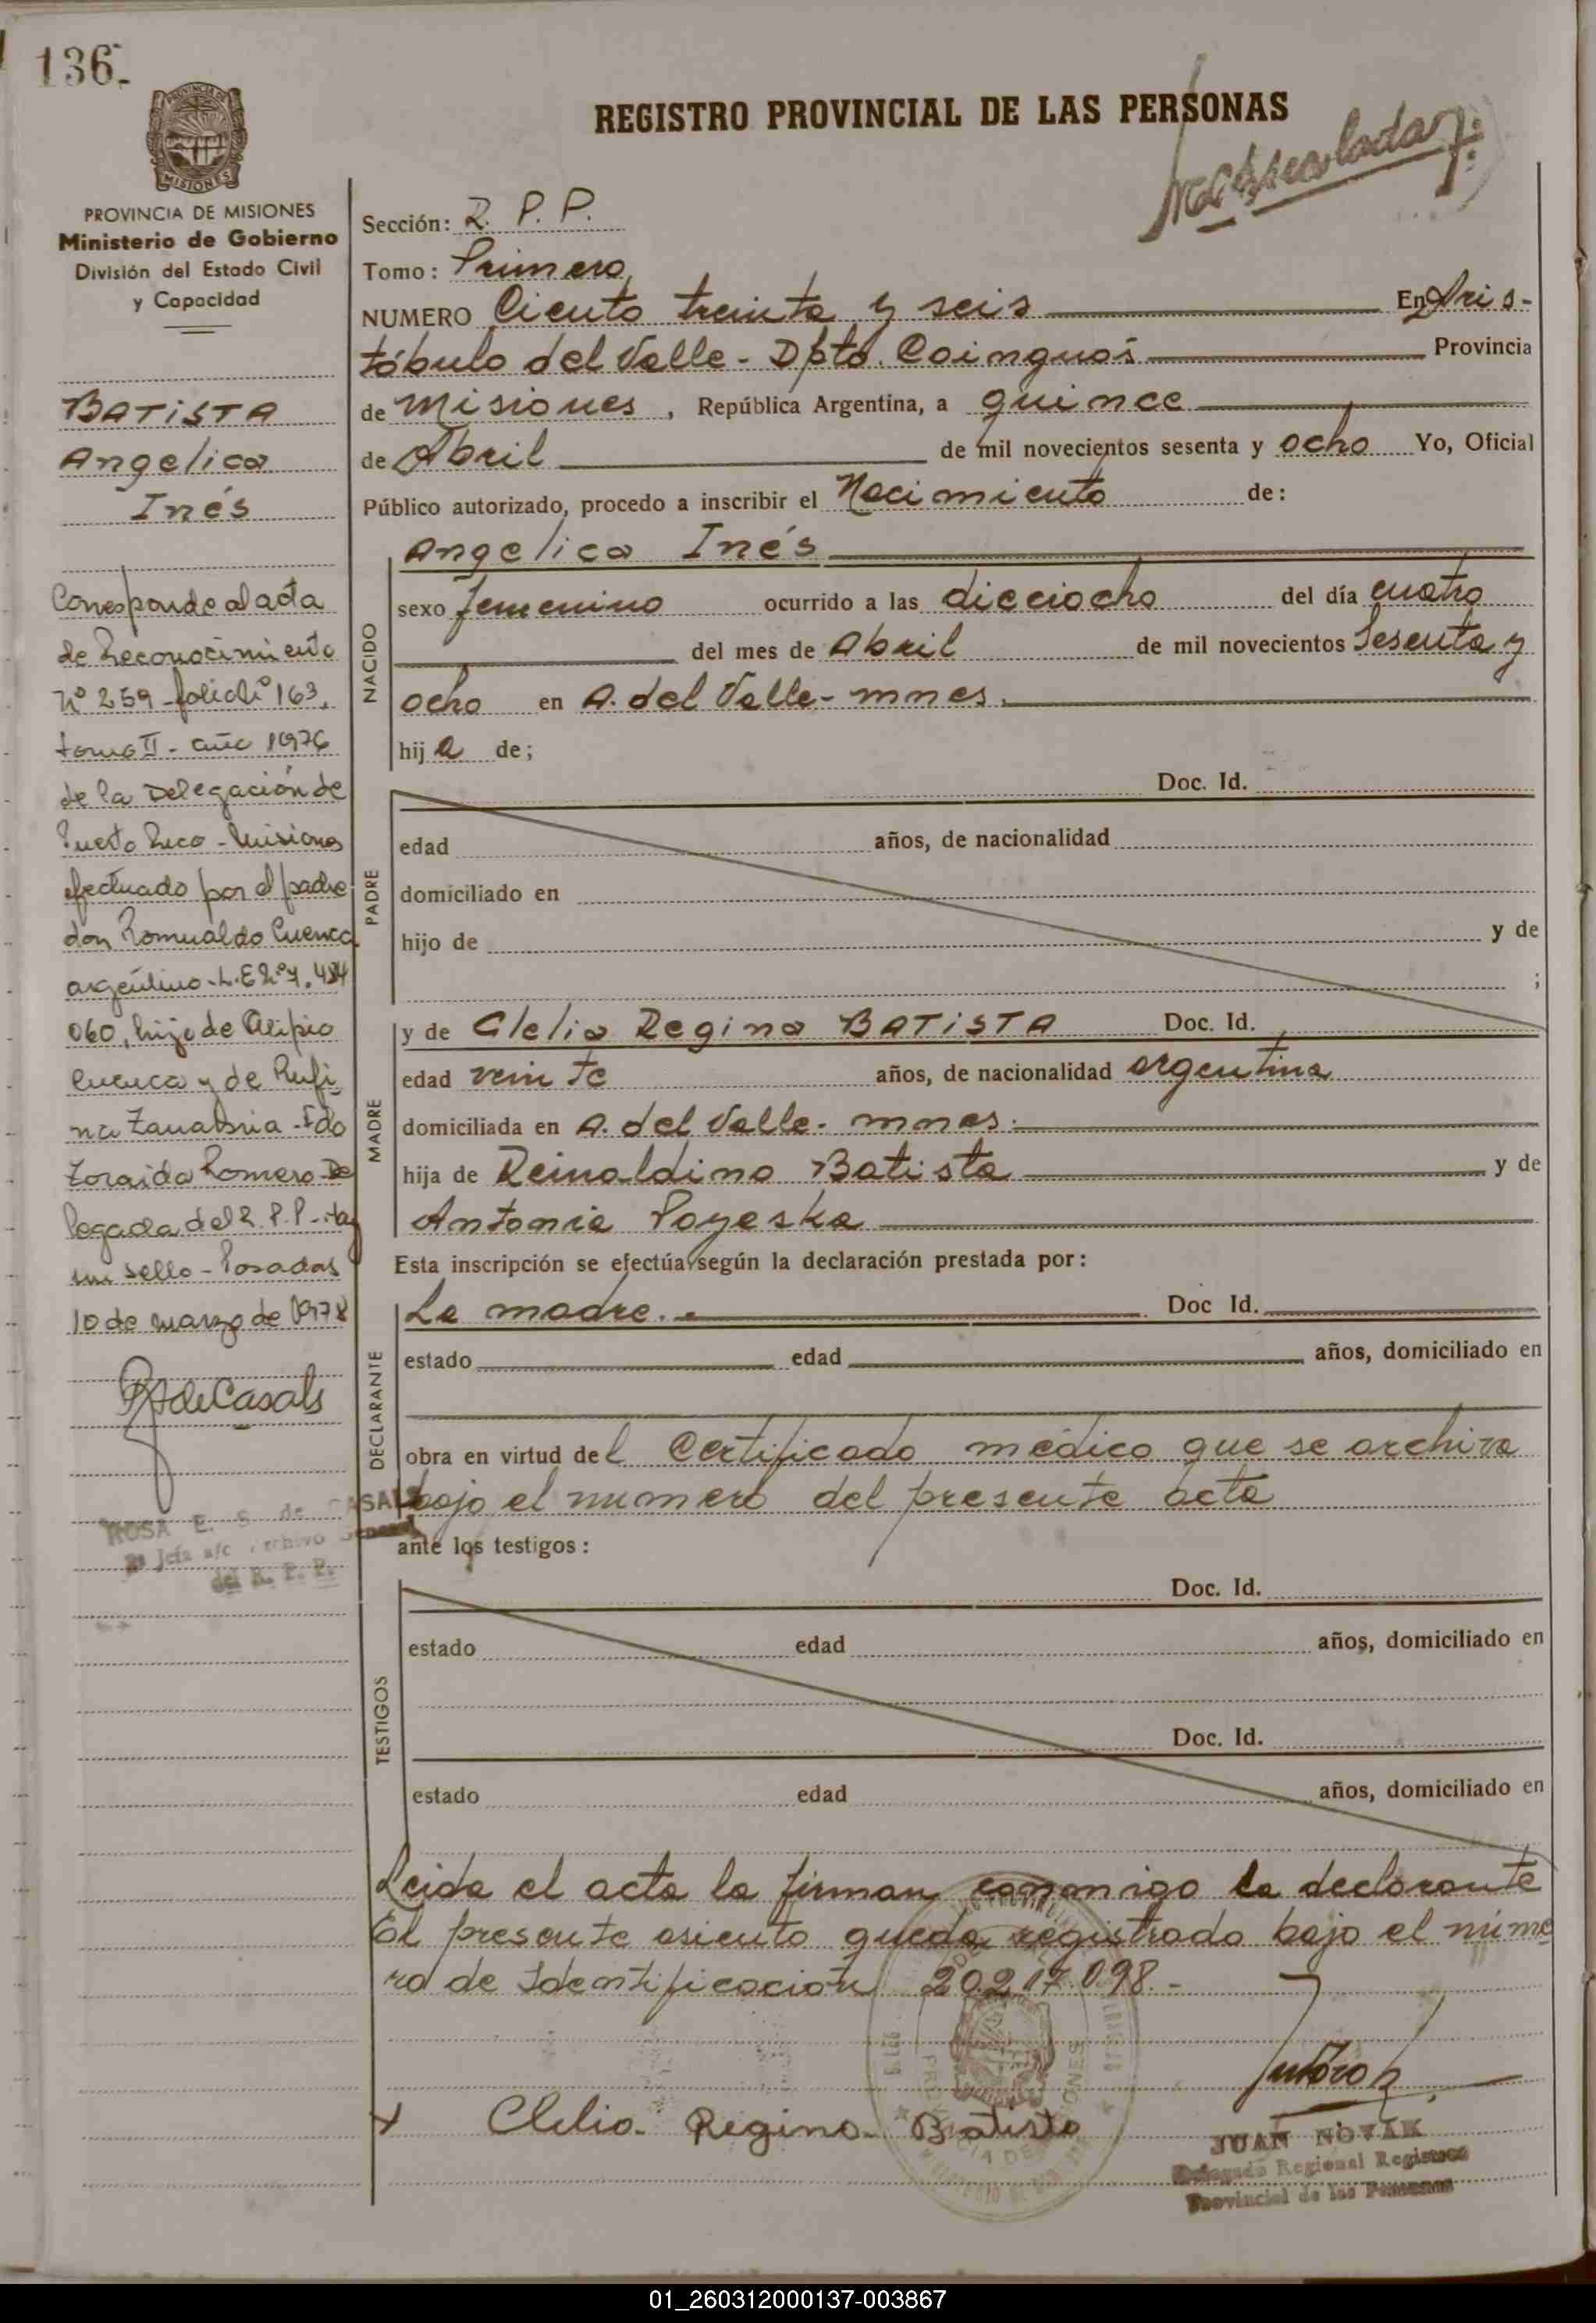 136.
PROVINCIA DE
MISIONES
PROVINCIA DE MISIONES
Ministerio de Gobierno
División del Estado Civil
y Capacidad
BATISTA
Angelica
Inés
Corresponde al acta
de Reconocimiento
Nº 259 - folio Nº 163,
tomo II - año 1976
de la Delegación de
Puerto Rico - Misiones
efectuado por el padre
don Romualdo Cuenca
argentino - L.E Nº 7.484
060, hijo de Alipio
Cuenca y de Rufi
na Zanabria - Fdo
Zoraida Romero - De
legada del R.P.P. - hay
un sello - Posadas
10 de marzo de 1978
RAdeCasals
ROSA E. S. de CASALS
2a Jefa a/c Archivo General
del R. P. P.
REGISTRO PROVINCIAL DE LAS PERSONAS
Sección: R. P. P.
Tomo: Primero
NUMERO Ciento treinta y seis En Aris-
tóbulo del Valle - Dpto. Cainguás Provincia
de Misiones, República Argentina, a quince
de Abril de mil novecientos sesenta y ocho Yo, Oficial
Público autorizado, procedo a inscribir el Nacimiento de:
NACIDO
Angelica Inés
sexo femenino ocurrido a las dieciocho del día cuatro
del mes de Abril de mil novecientos Sesenta y
ocho en A. del Valle - mnes.
hij a de;
PADRE
Doc. Id.
edad años, de nacionalidad
domiciliado en
hijo de y de
;
MADRE
y de Clelia Regina BATISTA Doc. Id.
edad veinte años, de nacionalidad argentina
domiciliada en A. del Valle - mnes.
hija de Reinaldino Batista y de
Antonia Poyeska
Esta inscripción se efectúa según la declaración prestada por:
DECLARANTE
La madre. Doc Id.
estado edad años, domiciliado en
obra en virtud del Certificado médico que se archiva
bajo el numero del presente acta
ante los testigos:
TESTIGOS
Doc. Id.
estado edad años, domiciliado en
Doc. Id.
estado edad años, domiciliado en
Leida el acta la firman conmigo la declarante
El presente asiento queda registrado bajo el núme
ro de Identificación 20.217.098.-
x Clelia Regina Batista
JUAN NOVAK
Delegado Regional Registro
Provincial de las Personas
01_260312000137-003867